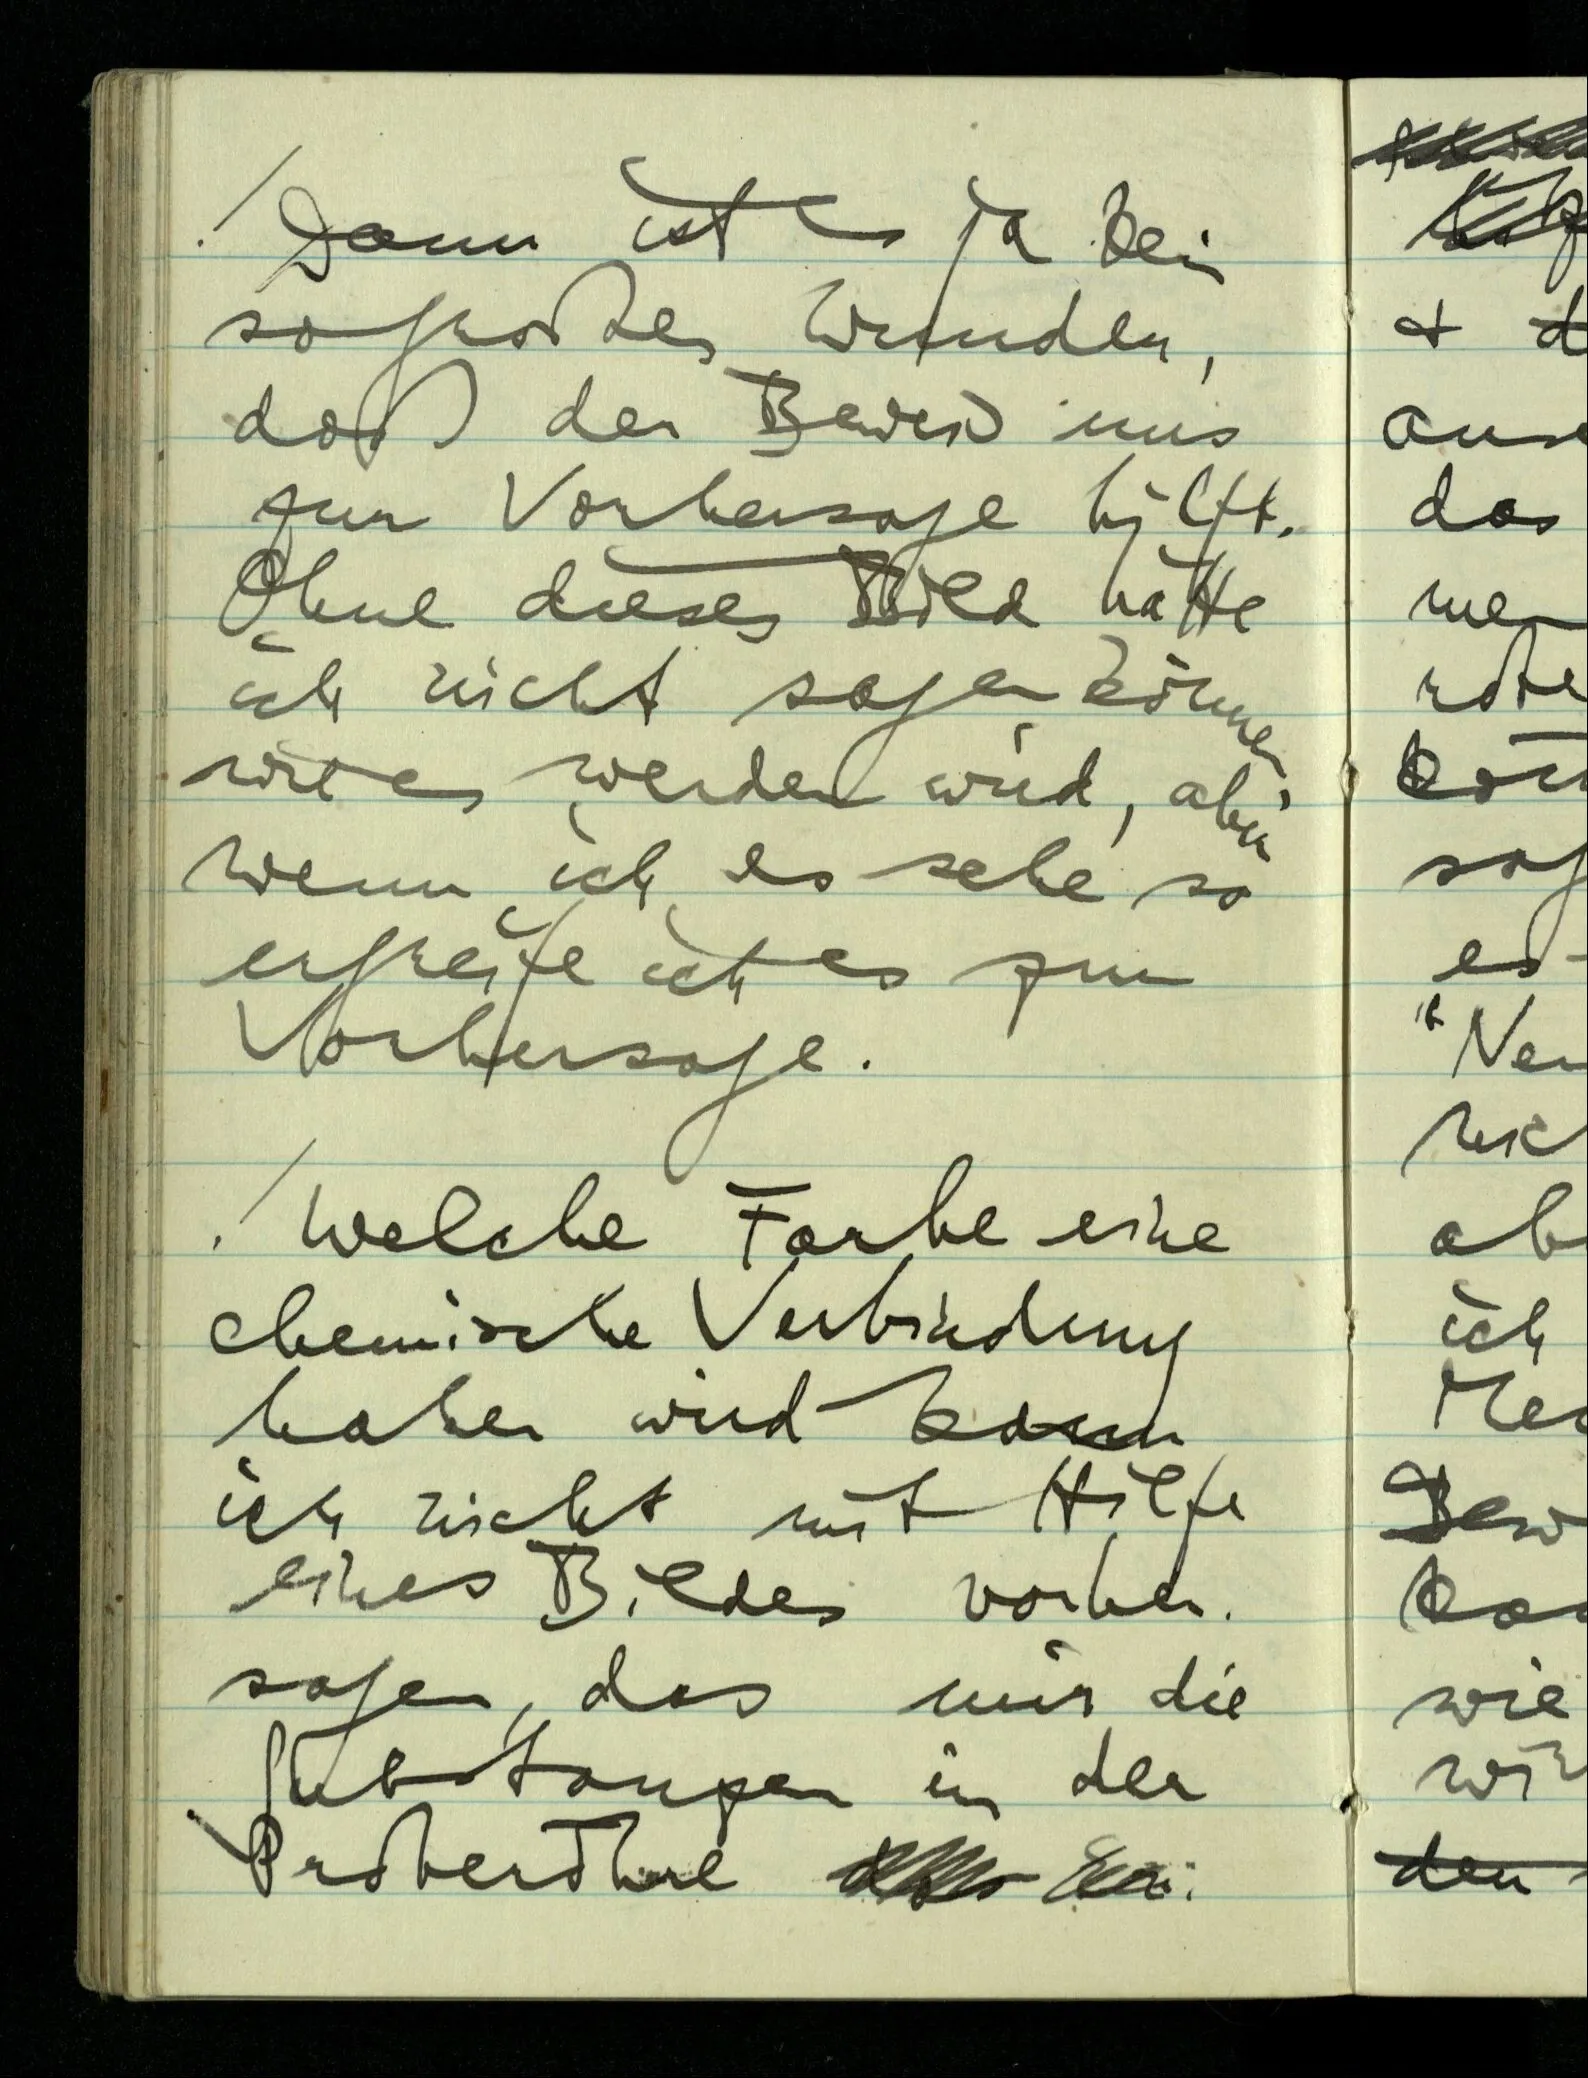 ./ Dann ist es ja kein
so großes Wunder,
daß der Beweis uns
zur Vorhersage hilft.
Ohne dieses Bild hätte
ich nicht sagen können
wie es werden wird, aber
wenn ich es sehe so
ergreife ich es zur
Vorhersage.
./ Welche Farbe eine
chemische Verbindung
haben wird kann
ich nicht mit Hilfe
eines Bildes vorher-
sagen, das mir die
Substanzen in der
Proberöhre
& d
das
ich
wie
den